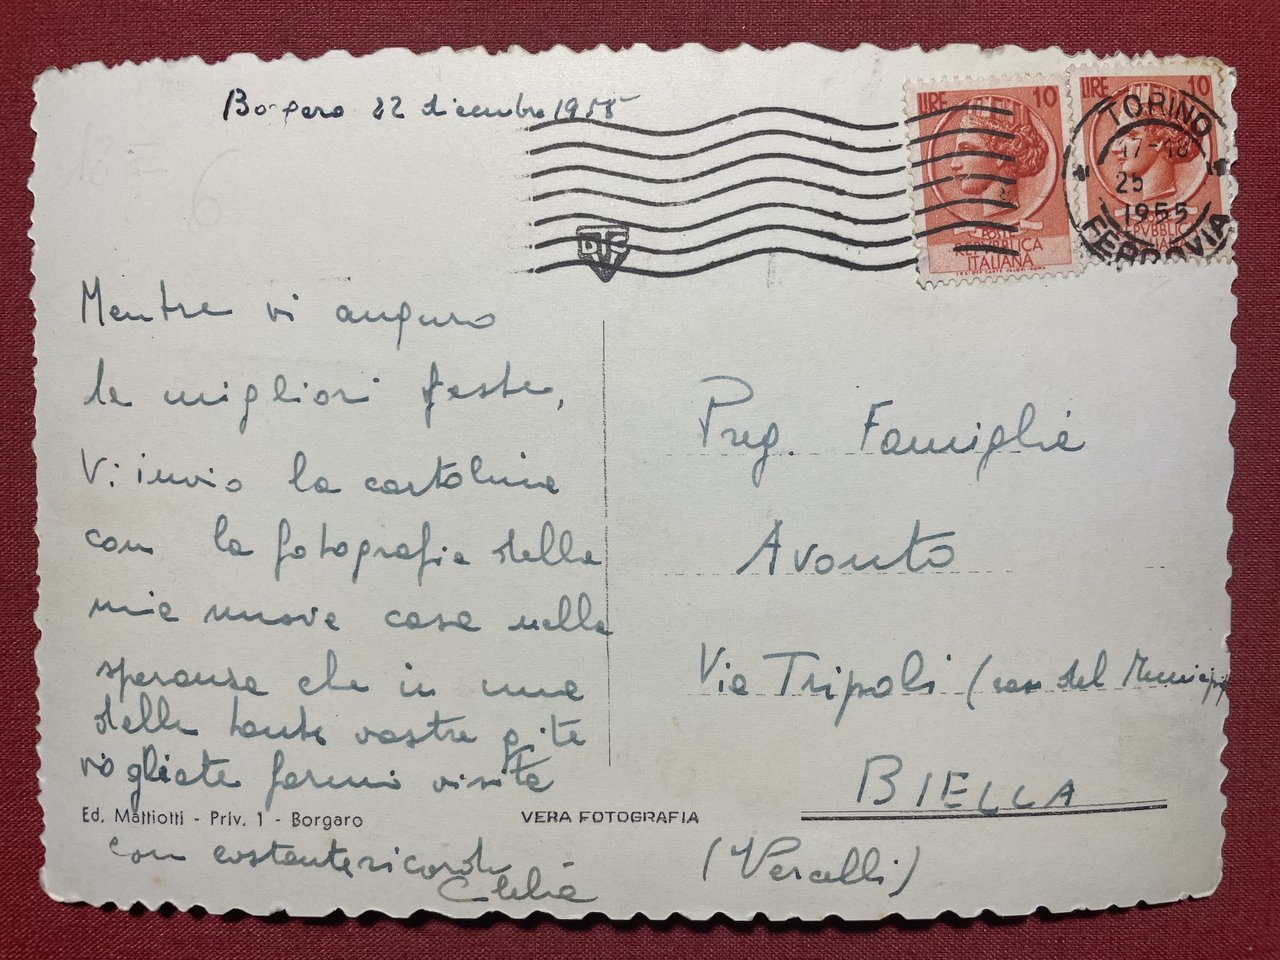 Borgaro 22 dicembre 1955
LIRE 10
POSTE
REPVBBLICA
ITALIANA
LIRE 10
REPVBBLICA
TORINO
17-18
25
1955
FERROVIA
DTC
Mentre vi auguro
le migliori feste,
Vi invio la cartolina
con la fotografia della
mia nuova casa nella
speranza che in una
delle tante vostre gite
vogliate farmi visita
con costante ricordo
Preg. Famiglia
Avonto
Via Tripoli (casa del Municipio
BIELLA
(Vercelli)
Ed. Mattiotti - Priv. 1 - Borgaro
VERA FOTOGRAFIA